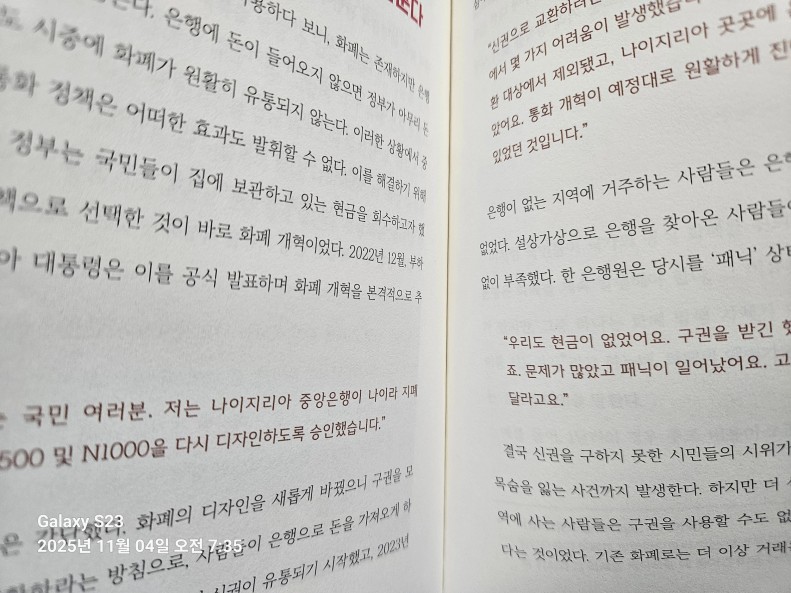 용하다 보니, 화폐는 존재하지만 은행
다. 은행에 돈이 들어오지 않으면 정부가 아무리 돈
도 시중에 화폐가 원활히 유통되지 않는다. 이러한 상황에서 중
통화 정책은 어떠한 효과도 발휘할 수 없다. 이를 해결하기 위해
정부는 국민들이 집에 보관하고 있는 현금을 회수하고자 했
책으로 선택한 것이 바로 화폐 개혁이었다. 2022년 12월, 부하
아 대통령은 이를 공식 발표하며 화폐 개혁을 본격적으로 추
는 국민 여러분. 저는 나이지리아 중앙은행이 나이라 지폐
500 및 N1000을 다시 디자인하도록 승인했습니다.”
은 간단했다. 화폐의 디자인을 새롭게 바꿨으니 구권을 모
라는 방침으로, 사람들이 은행으로 돈을 가져오게 하
신권이 유통되기 시작했고, 2023년
“신권으로 교환하려는
에서 몇 가지 어려움이 발생했습니
환 대상에서 제외됐고, 나이지리아 곳곳에
았어요. 통화 개혁이 예정대로 원활하게 진
있었던 것입니다.”
은행이 없는 지역에 거주하는 사람들은 은
없었다. 설상가상으로 은행을 찾아온 사람들
없이 부족했다. 한 은행원은 당시를 ‘패닉’ 상
“우리도 현금이 없었어요. 구권을 받긴 했
죠. 문제가 많았고 패닉이 일어났어요. 고
달라고요.”
결국 신권을 구하지 못한 시민들의 시위가
목숨을 잃는 사건까지 발생한다. 하지만 더
역에 사는 사람들은 구권을 사용할 수도 없
다는 것이었다. 기존 화폐로는 더 이상 거래
Galaxy S23
2025년 11월 04일 오전 7:35